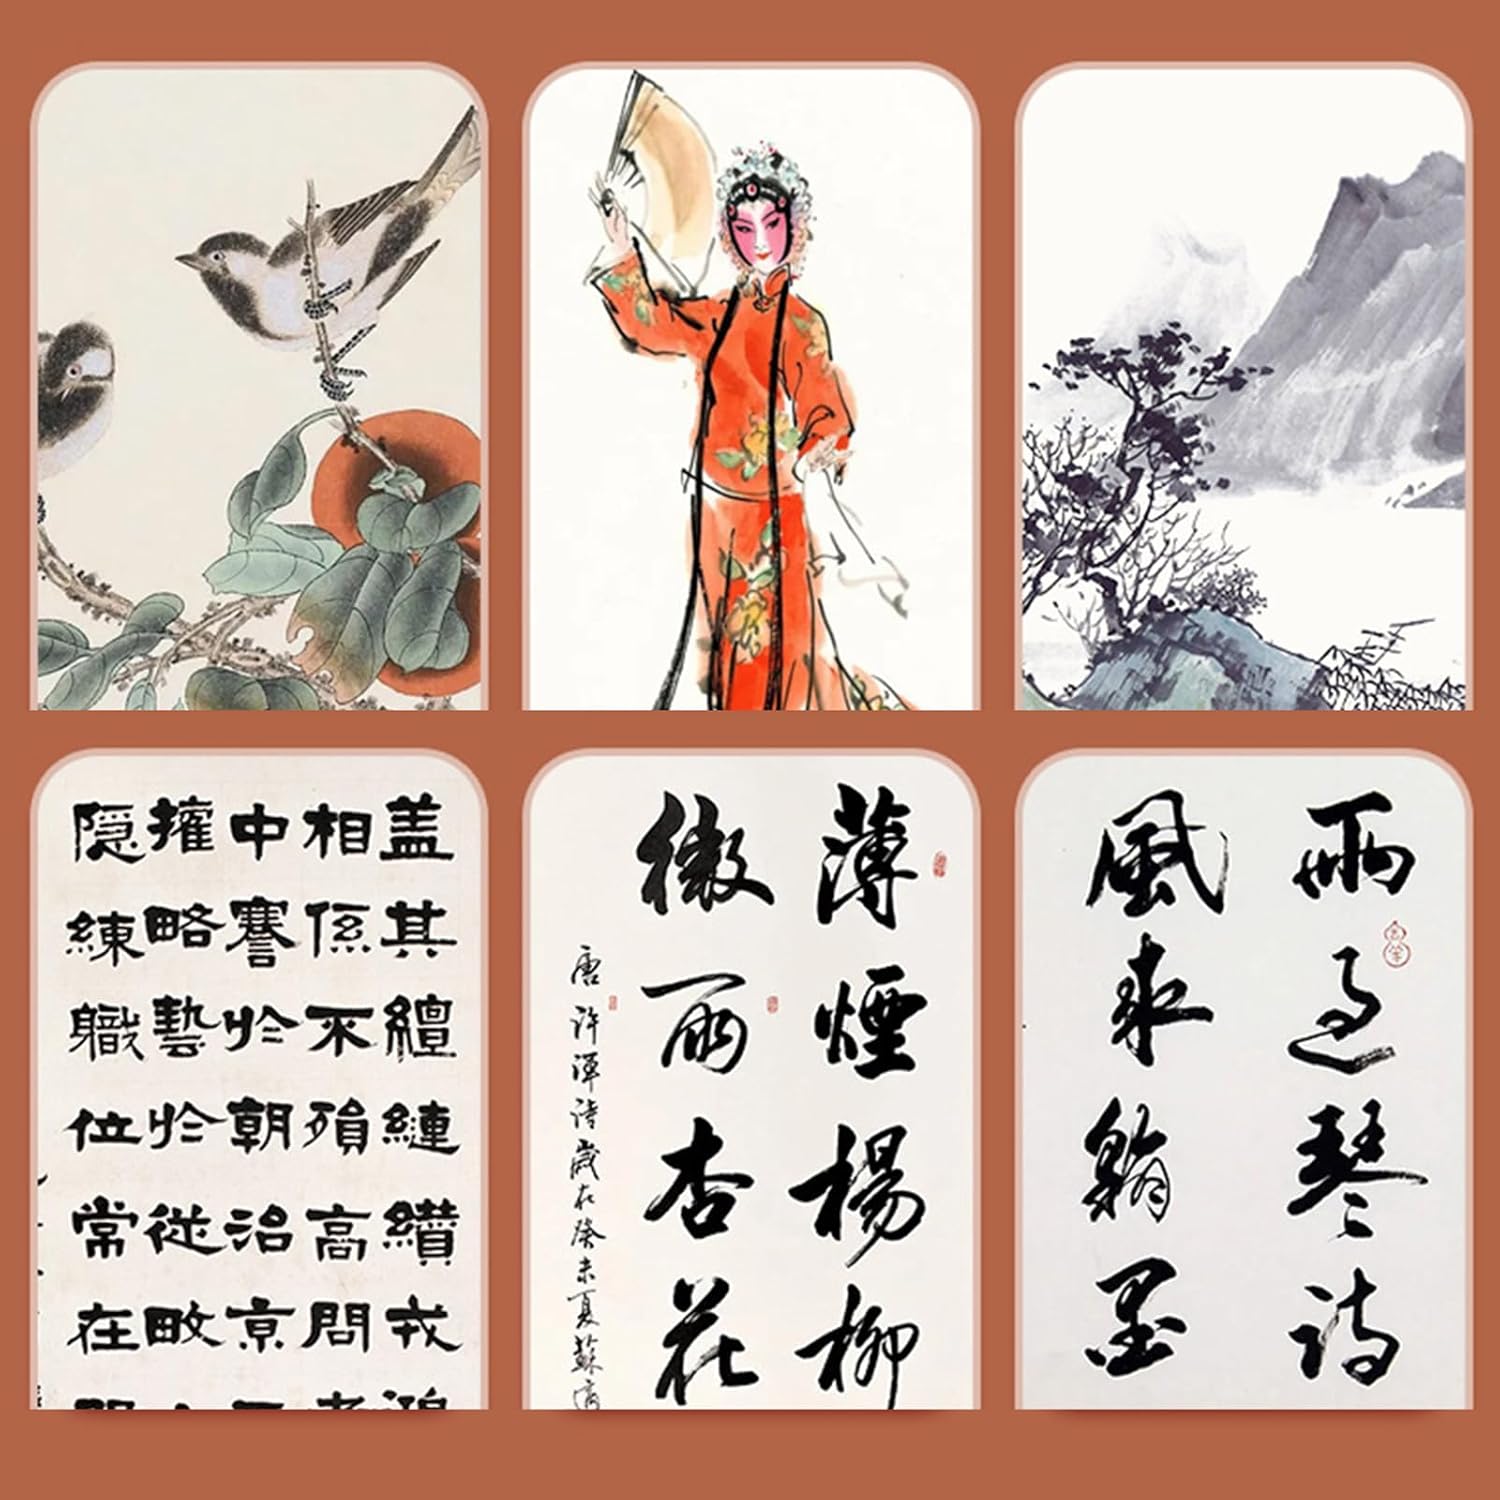 盖其繵縺纘戎
相係不殞高問
中謇於朝治京
權略藝於從畋
隐練軄位常在
薄煙楊柳
微雨杏花
唐許渾詩歲在癸未夏蘇
雨過琴詩
風來翰墨